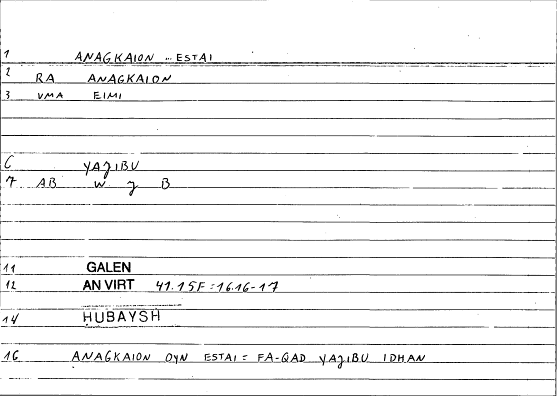 1 ANAGKAION .. ESTAI
2 RA ANAGKAION
3 VMA EIMI
6 YAJIBU
7 AB W J B
11 GALEN
12 AN VIRT 41.15F = 16.16-17
14 HUBAYSH
16 ANAGKAION OYN ESTAI = FA-QAD YAJIBU IDHAN